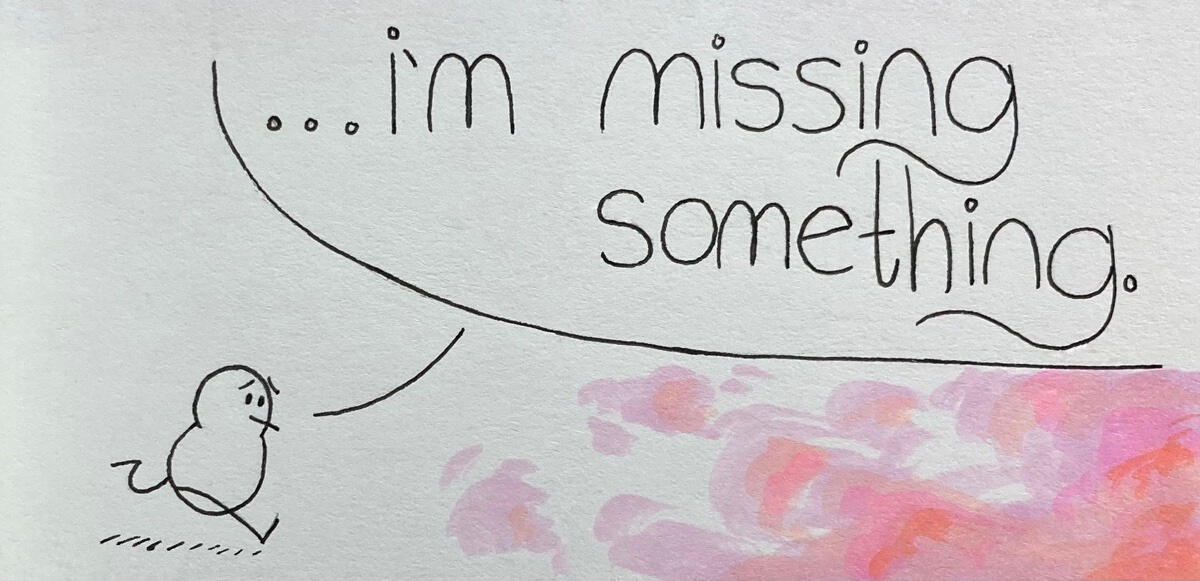 ...i'm missing
something.